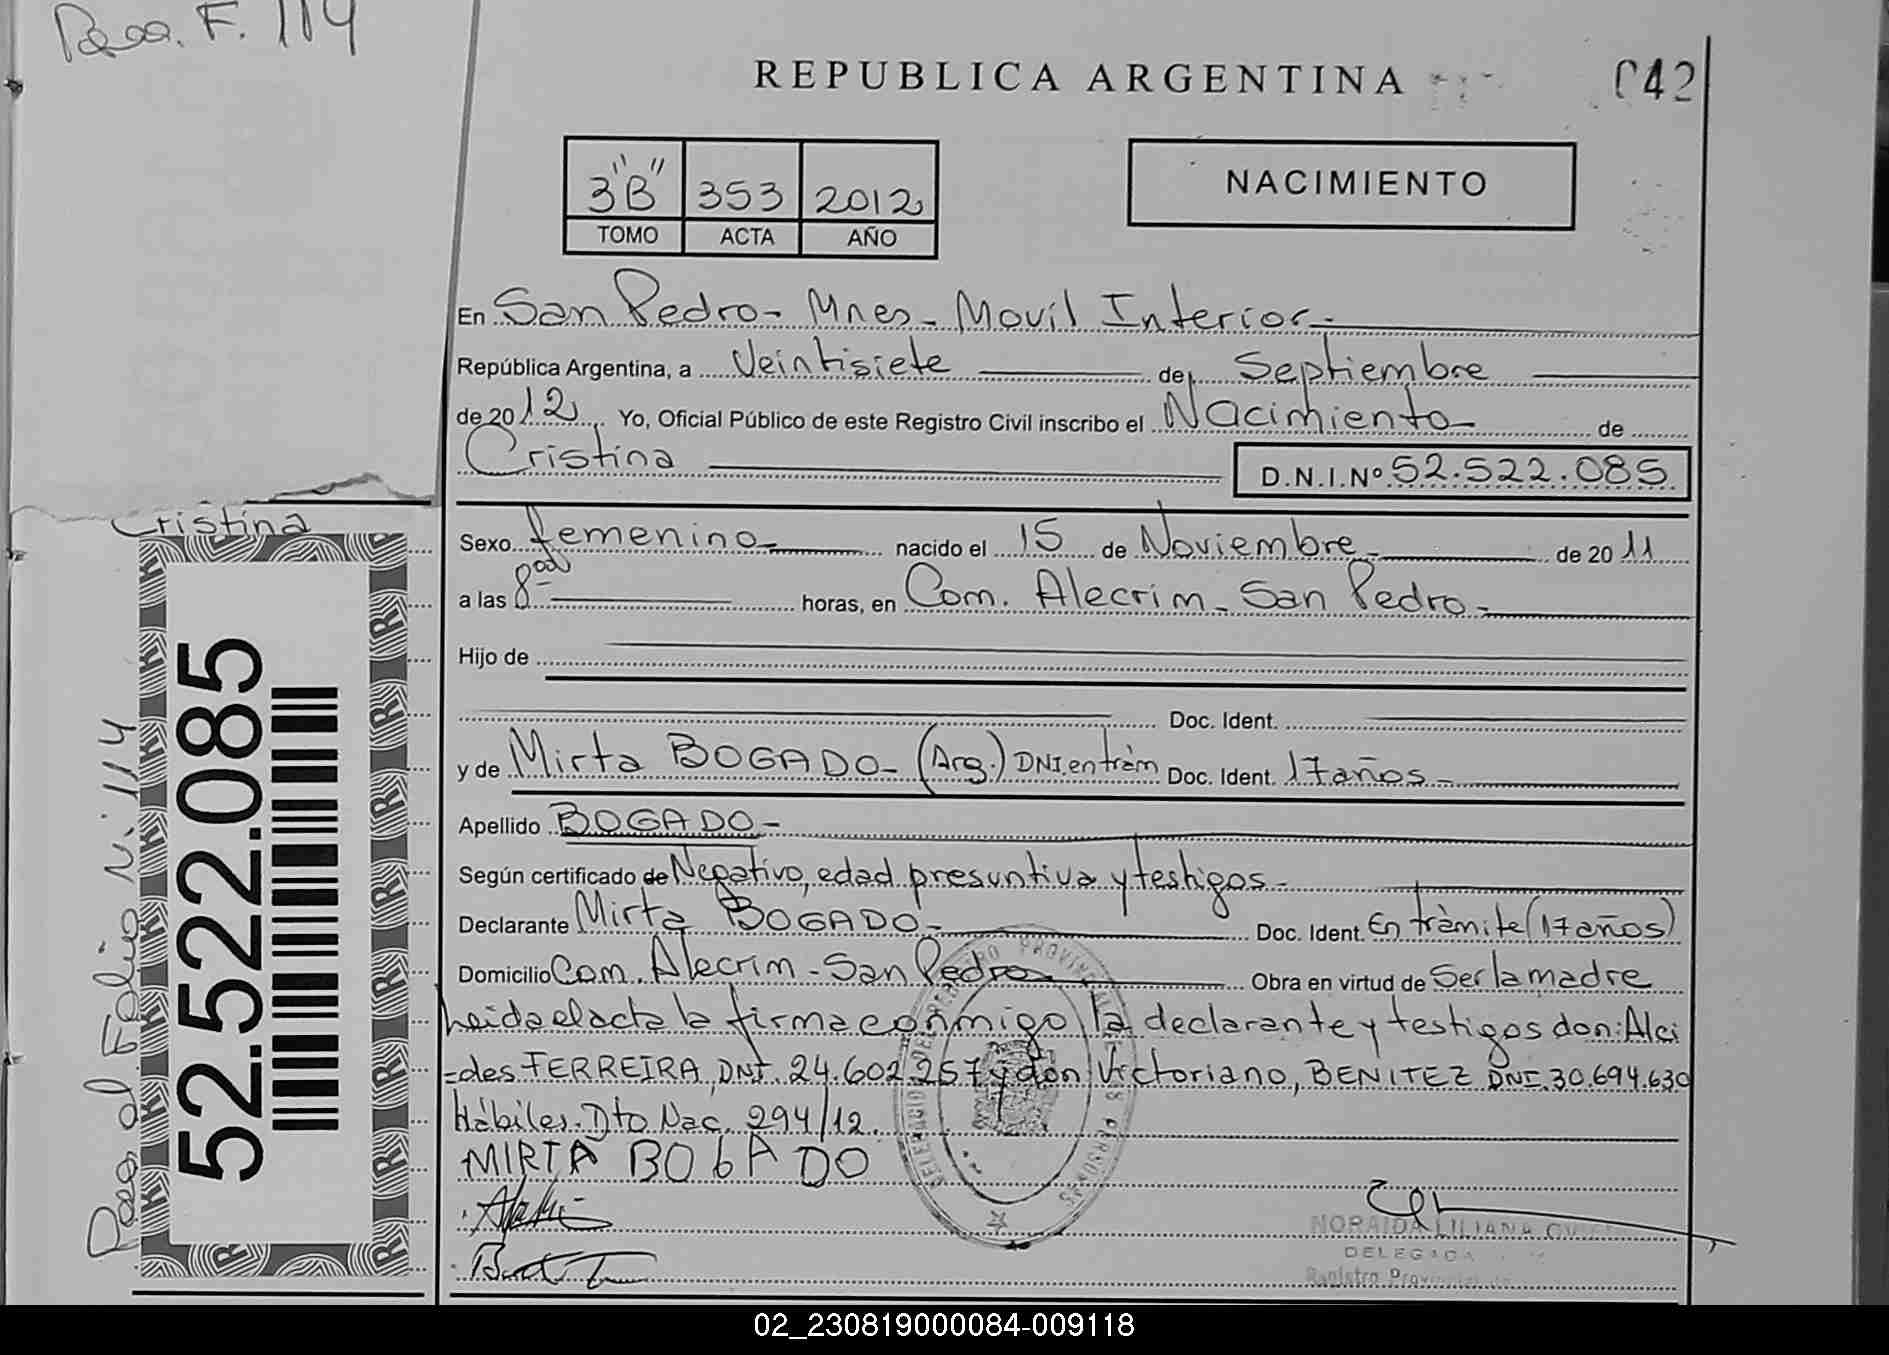 Pasa. F. 114
REPUBLICA ARGENTINA
042
3"B" 353 2012
TOMO ACTA AÑO
NACIMIENTO
En San Pedro- Mnes- Movil Interior-
República Argentina, a Veintisiete de Septiembre
de 2012 Yo, Oficial Público de este Registro Civil inscribo el Nacimiento de
Cristina
D.N.I.Nº 52.522.085
Sexo femenino- nacido el 15 de Noviembre- de 2011
a las 8 horas, en Com. Alecrim- San Pedro-
Hijo de
Doc. Ident.
y de Mirta BOGADO- (Arg.) DNI.en trám Doc. Ident. 17 años-
Apellido BOGADO-
Según certificado de Negativo, edad presuntiva y testigos-
Declarante Mirta BOGADO- Doc. Ident. En trámite (17 años)
Domicilio Com. Alecrim - San Pedro Obra en virtud de Ser la madre
Leida el acta la firma conmigo la declarante y testigos don: Alci
-des FERREIRA, DNI. 24.602.257 y don Victoriano, BENITEZ DNI. 30.694.630
Hábiles. Dto Nac. 294/12.
MIRTA BOGADO
NORAIDA LILIANA
DELEGADA
Registro Provincial de
Cristina
52.522.085
Pasa al Folio N: 114
02_230819000084-009118